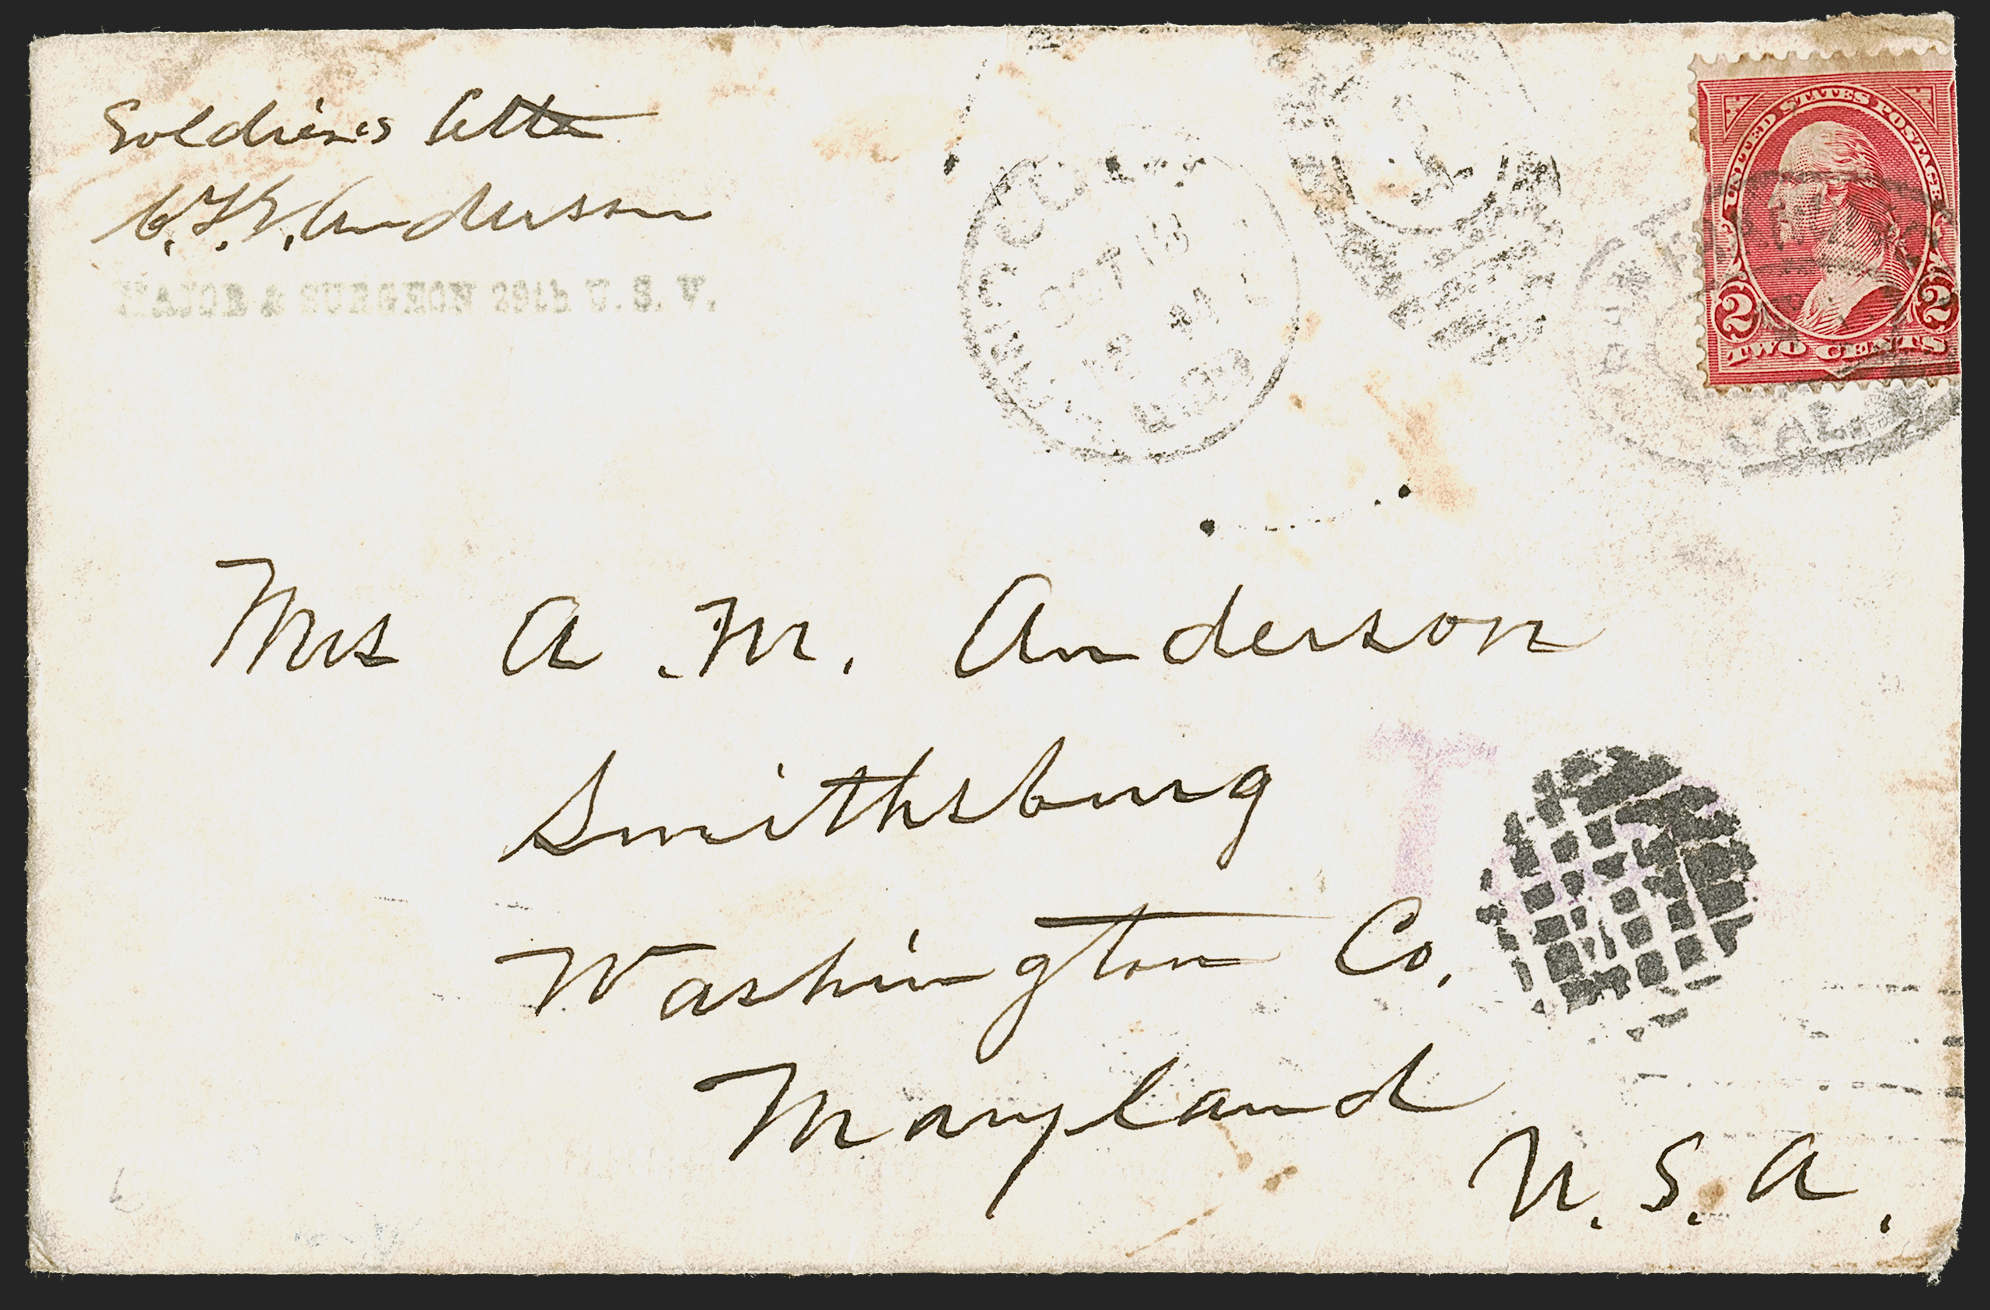 Soldier's Letter
C.L.V. Anderson
MAJOR & SURGEON 29th U. S. V.
UNITED STATES POSTAGE
2 2
TWO CENTS
OCT 13
CAL.
Mrs A. M. Anderson
Smithsburg
Washington Co.
Maryland
U. S. A.